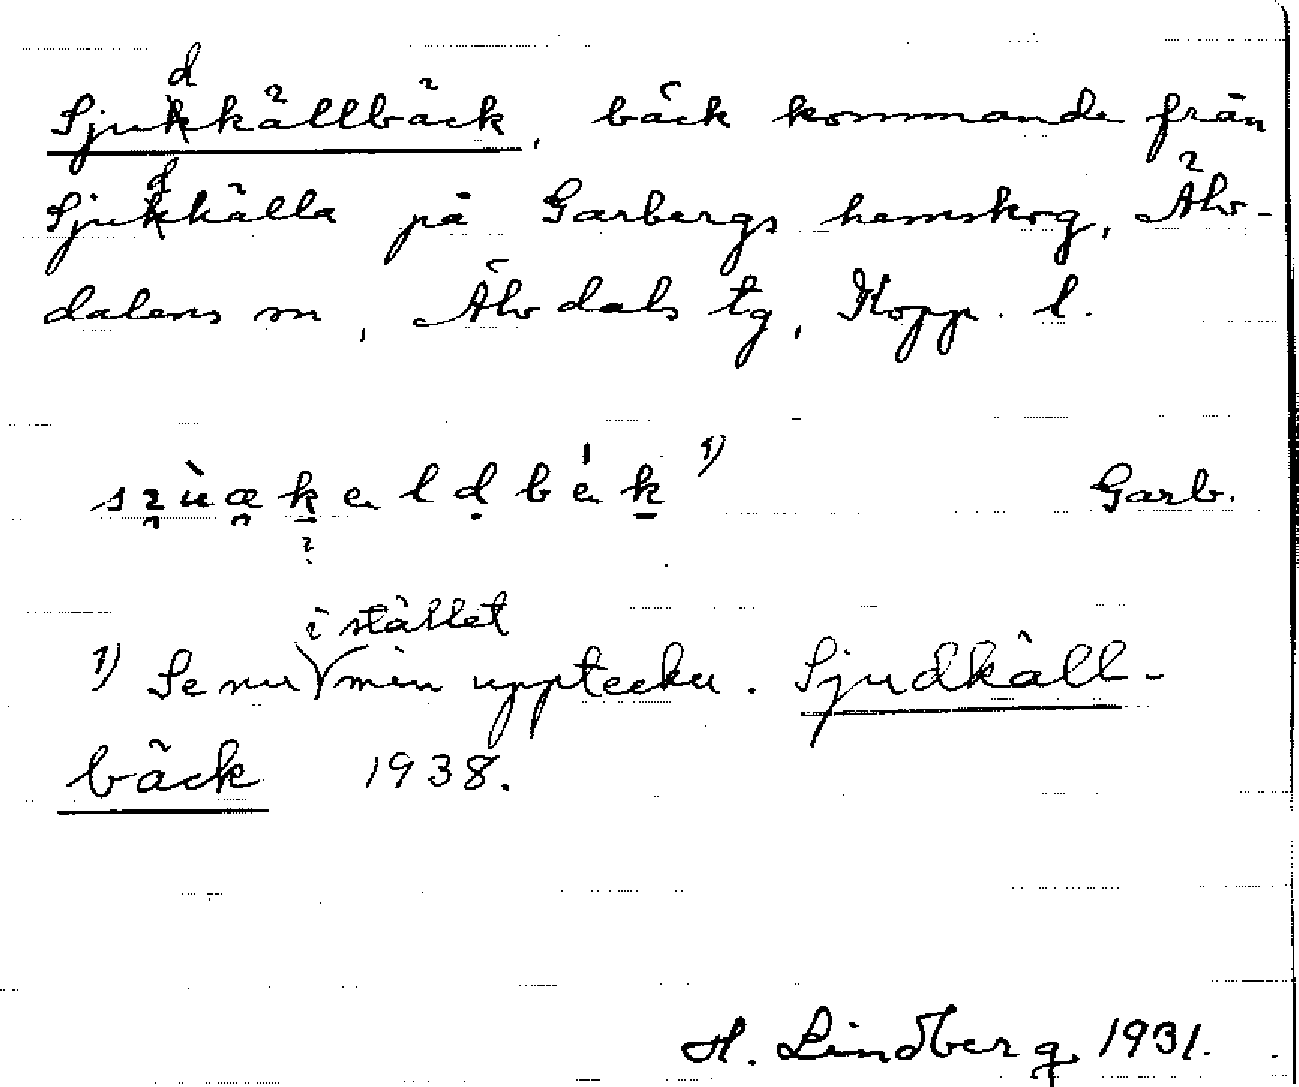 Sjudkällbäck, bäck kommande från
Sjudkälla på Garbergs hemskog, Älv-
dalens sn, Älvdals tg, Kopp. l.
Garb.
1) Se nu i stället min uppteckn. Sjudkäll-
bäck 1938.
H. Lindberg 1931.